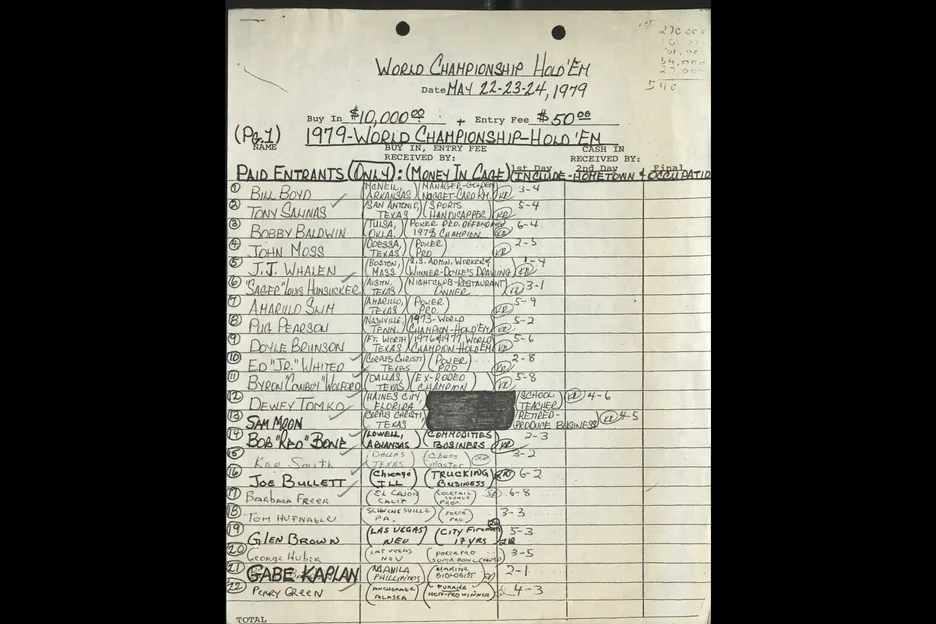 270,000
54,000
27,000
540
WORLD CHAMPIONSHIP HOLD'EM
Date MAY 22-23-24, 1979
Buy In $10,000.00 + Entry Fee $50.00
(PG.1) 1979-WORLD CHAMPIONSHIP-HOLD'EM
NAME BUY IN, ENTRY FEE RECEIVED BY: CASH IN RECEIVED BY:
1st Day 2nd Day Final
PAID ENTRANTS (ONLY): (MONEY IN CAGE) (INCLUDE-HOMETOWN & OCCUPATIO
1 BILL BOYD MCNEIL, ARKANSAS (MANAGER-GOLDEN NUGGET-CARD RM.) KR 3-4
2 TONY SALINAS (SAN ANTONIO, TEXAS) (SPORTS HANDICAPPER) KR 5-4
3 BOBBY BALDWIN (TULSA, OKLA.) (POKER PRO. DEFENDING 1978 CHAMPION) KR 6-4
4 JOHN MOSS (ODESSA, TEXAS) (POKER PRO) KR 2-5
5 J.J. WHALEN (BOSTON, MASS) ADMIN. WORKER & WINNER-DOYLE'S DRAWING) KR 1-4
6 LOUIS HUNSUCKER (AUSTIN, TEXAS) (NIGHTCLUB-RESTAURANT OWNER KR 3-1
7 AMARILLO SLIM (AMARILLO, TEXAS) (POKER PRO.) KR 5-9
8 PUG PEARSON (NASHVILLE, TENN.) (1973-WORLD CHAMPION-HOLD'EM) KR 5-2
9 DOYLE BRUNSON (FT. WORTH TEXAS) (1976 & 1977 WORLD CHAMPION-HOLD'EM) KR 5-6
10 ED "JR." WHITED (CORPUS CHRISTI TEXAS) (POKER PRO) KR 2-8
11 BYRON "COWBOY" WOLFORD (DALLAS, TEXAS) (EX-RODEO CHAMPION) KR 5-8
12 DEWEY TOMKO (HAINES CITY, FLORIDA) (SCHOOL TEACHER) KR 4-6
13 SAM MOON (CORPUS CHRISTI TEXAS) (RETIRED-PRODUCE BUSINESS) KR 4-5
14 BOB "RED" BONE (LOWELL, ARKANSAS) (COMMODITIES BUSINESS) KR 2-3
15 Ken Smith (DALLAS TEXAS) (Chess Master) 3-2
16 JOE BULLETT (Chicago ILL) (TRUCKING BUSINESS) 6-2
17 BARBARA FREER (EL CAJON CALIF) (COCKTAIL LOUNGE PROP.) 6-8
18 TOM HUFNAGLE (SCHWENKSVILLE PA.) (POKER PRO) 3-3
19 GLEN BROWN (LAS VEGAS) NEV (CITY FIREMAN 17 YRS) 5-3
20 GEORGE HUBER (LAS VEGAS NEV) (POKER PRO 3-5
21 GABE KAPLAN (MANILA PHILLIPINOS) (MARINE BIOLOGIST) 2-1
22 PERRY GREEN (ANCHORAGE ALASKA) (FURRIER NON-PRO WINNER) 4-3
TOTAL